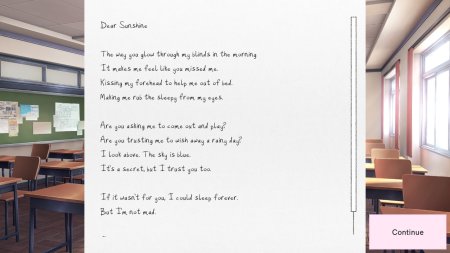 Dear Sunshine
The way you glow through my blinds in the morning
It makes me feel like you missed me.
Kissing my forehead to help me out of bed.
Making me rub the sleepy from my eyes.
Are you asking me to come out and play?
Are you trusting me to wish away a rainy day?
I look above. The sky is blue.
It's a secret, but I trust you too.
If it wasn't for you, I could sleep forever.
But I'm not mad.
-
Continue